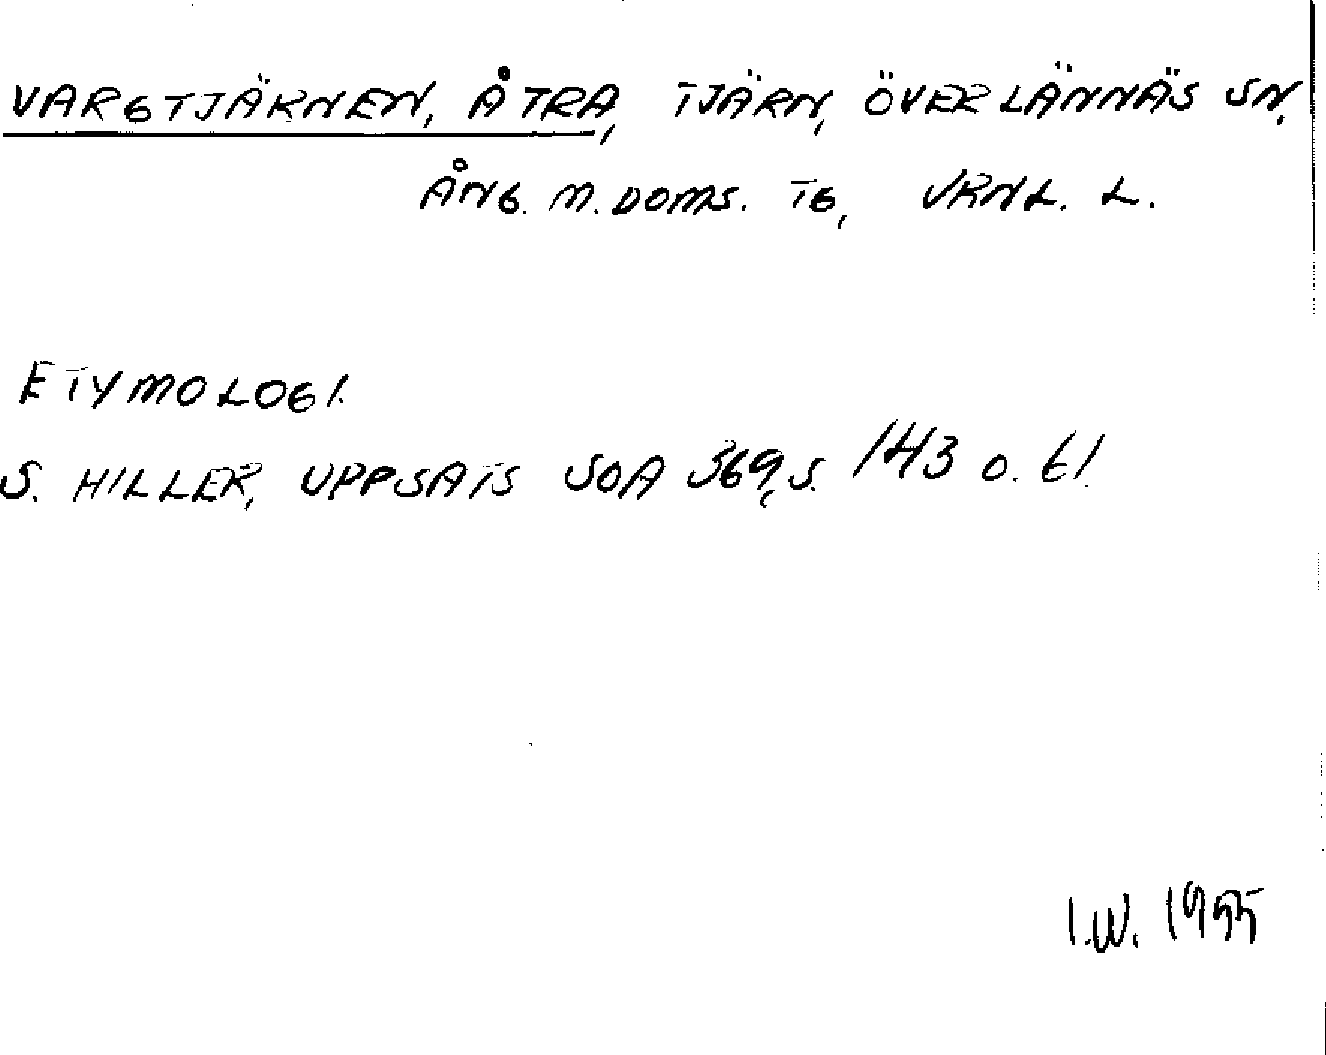 VARGTJÄRNEN, ÅTRA, TJÄRN, ÖVERLÄNNÄS SN,
ÅNG. M. DOMS. TG, VRNL. L.
ETYMOLOGI.
S. HILLER, UPPSATS SOA 369, S. 143 o. 61.
I.W. 1955